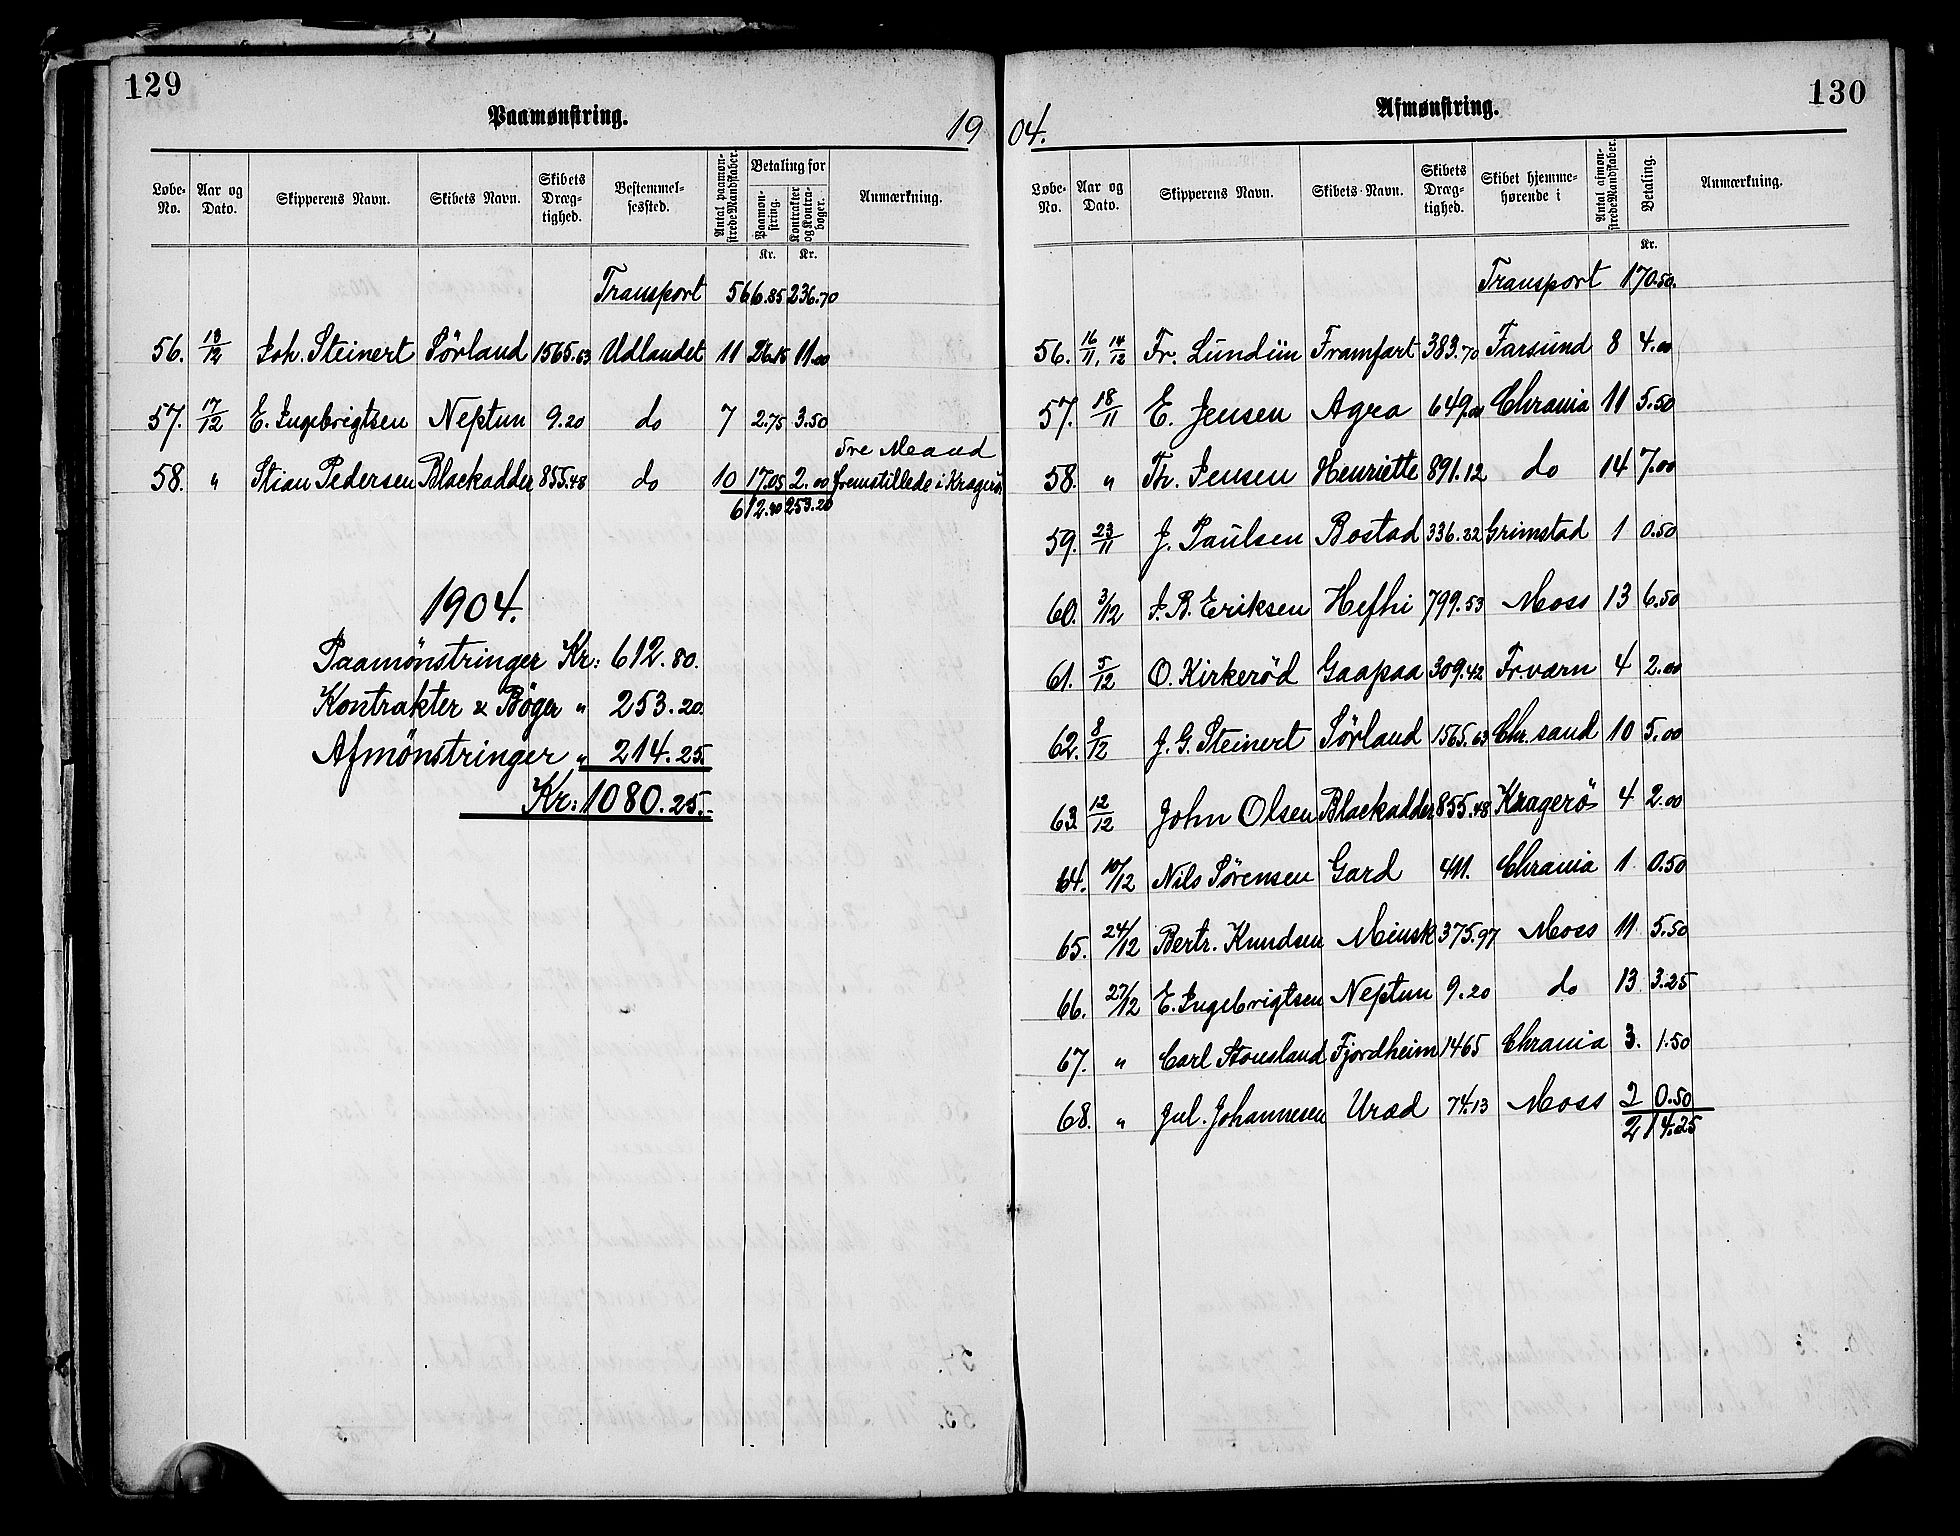 129
Paamønstring.
19
Løbe-No. Aar og Dato. Skipperens Navn. Skibets Navn. Skibets Dræg-tighed. Bestemmel-sessted. Antal paamøn-strede Mandskaber. Betaling for Paamøn-string. Kr. Kontrakter og Kontra-bøger. Kr. Anmærkning.
Transport 566.85 236.70
56. 13/12 Joh. Steinert Sörland 1565.63 Udlandet 11 26.15 11.00
57. 17/12 E. Ingebrigtsen Neptun 9.20 do 7 2.75 3.50
Tre Mand
58. " Stian Pedersen Blackadder 855.48 do 10 17.05 2.00 fremstillede i Kragerö.
612.80 253.20
1904.
Paamönstringer Kr: 612.80.
Kontrakter & Böger " 253.20.
Afmönstringer " 214.25.
Kr: 1080.25.-
130
Afmønstring.
04.
Løbe-No. Aar og Dato. Skipperens Navn. Skibets Navn. Skibets Dræg-tighed. Skibet hjemme-hørende i Antal afmøn-strede Mandskaber. Betaling. Kr. Anmærkning.
Transport 170.50.
56. 16/11, 14/12 Fr. Lundiin Framfart 383.70 Farsund 8 4.00
57. 18/11 E. Jensen Agra 649.01 Chrania 11 5.50
58. " Th. Jensen Henriette 891.12 do 14 7.00
59. 23/11 J. Paulsen Bostad 336.22 Grimstad 1 0.50
60. 3/12 J. B. Eriksen Hefhi 799.53 Moss 13 6.50
61. 5/12 O. Kirkeröd Gaapaa 309.42 Fr.værn 4 2.00
62. 8/12 J. G. Steinert Sörland 1565.63 Chr. sand 10 5.00
63 12/12 John Olsen Blackadder 855.48 Kragerö 4 2.00
64. 10/12 Nils Sörensen Gard 411. Chrania 1 0.50
65. 24/12 Bertr. Knudsen Minsk 375.97 Moss 11 5.50
66. 27/12 E. Ingebrigtsen Neptun 9.20 do 13 3.25
67. " Carl Stousland Fjordheim 1465 Chrania 3. 1.50
68. " Jul. Johannesen Uræd 74.13 Moss 2 0.50
214.25